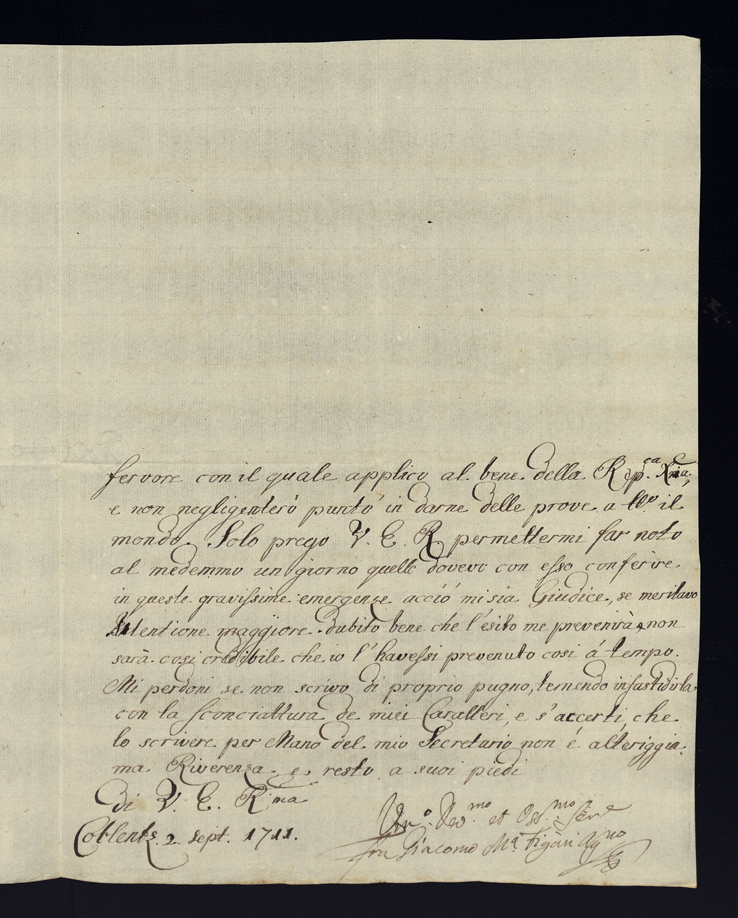 fervore con il quale applico al bene della Rep.ca Xna,
e non negligenterò punto in darne delle prove a tto il
mondo. Solo prego V. E. R permettermi far noto
al medemmo un giorno quello dovevo con esso conferire
in queste gravissime emergenze acciò mi sia Giudice, se meritavo
attentione maggiore. dubito bene che l'esito me prevenirà, e non
sarà così credibile che io l'havessi prevenuto così á tempo.
Mi perdoni se non scrivo di proprio pugno, temendo infastidirla
con la sconciattura de miei Caratteri, e s'accerti, che
lo scrivere per Mano del mio Secretario non é alteriggia
ma Riverenza, e resto a suoi piedi
di V. E. Rma
Coblents 2 Sept. 1711.
Um.o Dev.mo et Obb.mo Serve
fra Giacomo Ma Figari